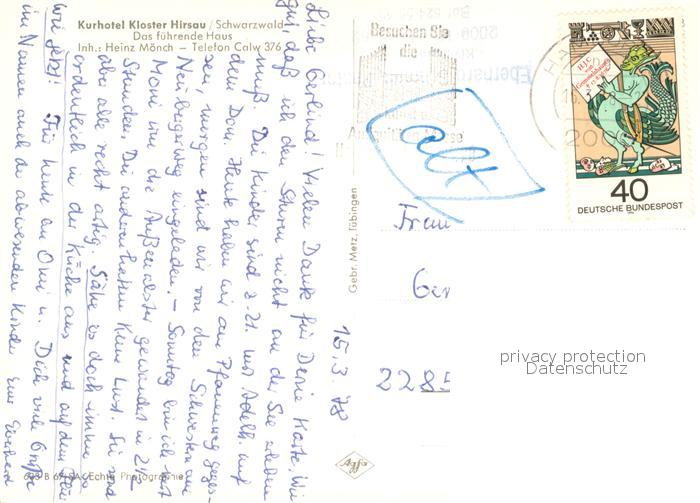 Kurhotel Kloster Hirsau / Schwarzwald
Das führende Haus
Inh.: Heinz Mönch – Telefon Calw 376
15.3.78
Liebe Gerlind! Vielen Dank für Deine Karte. Wie
gut, daß ich den Sturm nicht an der See erleben
muß. Die Kinder sind z. Zt. mit Adelh. auf
dem Dom. Heute haben wir am Pfauenweg geges-
sen, morgen sind wir von den Schwestern am
Neubergerweg eingeladen. – Sonntag bin ich mit
Moni um die Außenalster gewandert in 2½
Stunden. Die anderen hatten keine Lust. Sie sind
aber alle recht artig. Sähe es doch immer so
ordentlich in der Küche aus und auf dem
wie jetzt! Für heute an Omi u. Dich viele Grüße
im Namen auch der abwesenden Kinder Eure
Besuchen Sie
die
alt
Gebr. Metz, Tübingen
HJC
40
DEUTSCHE BUNDESPOST
Frau
Ger
2285
privacy protection
Datenschutz
Agfa
Echte Photographie